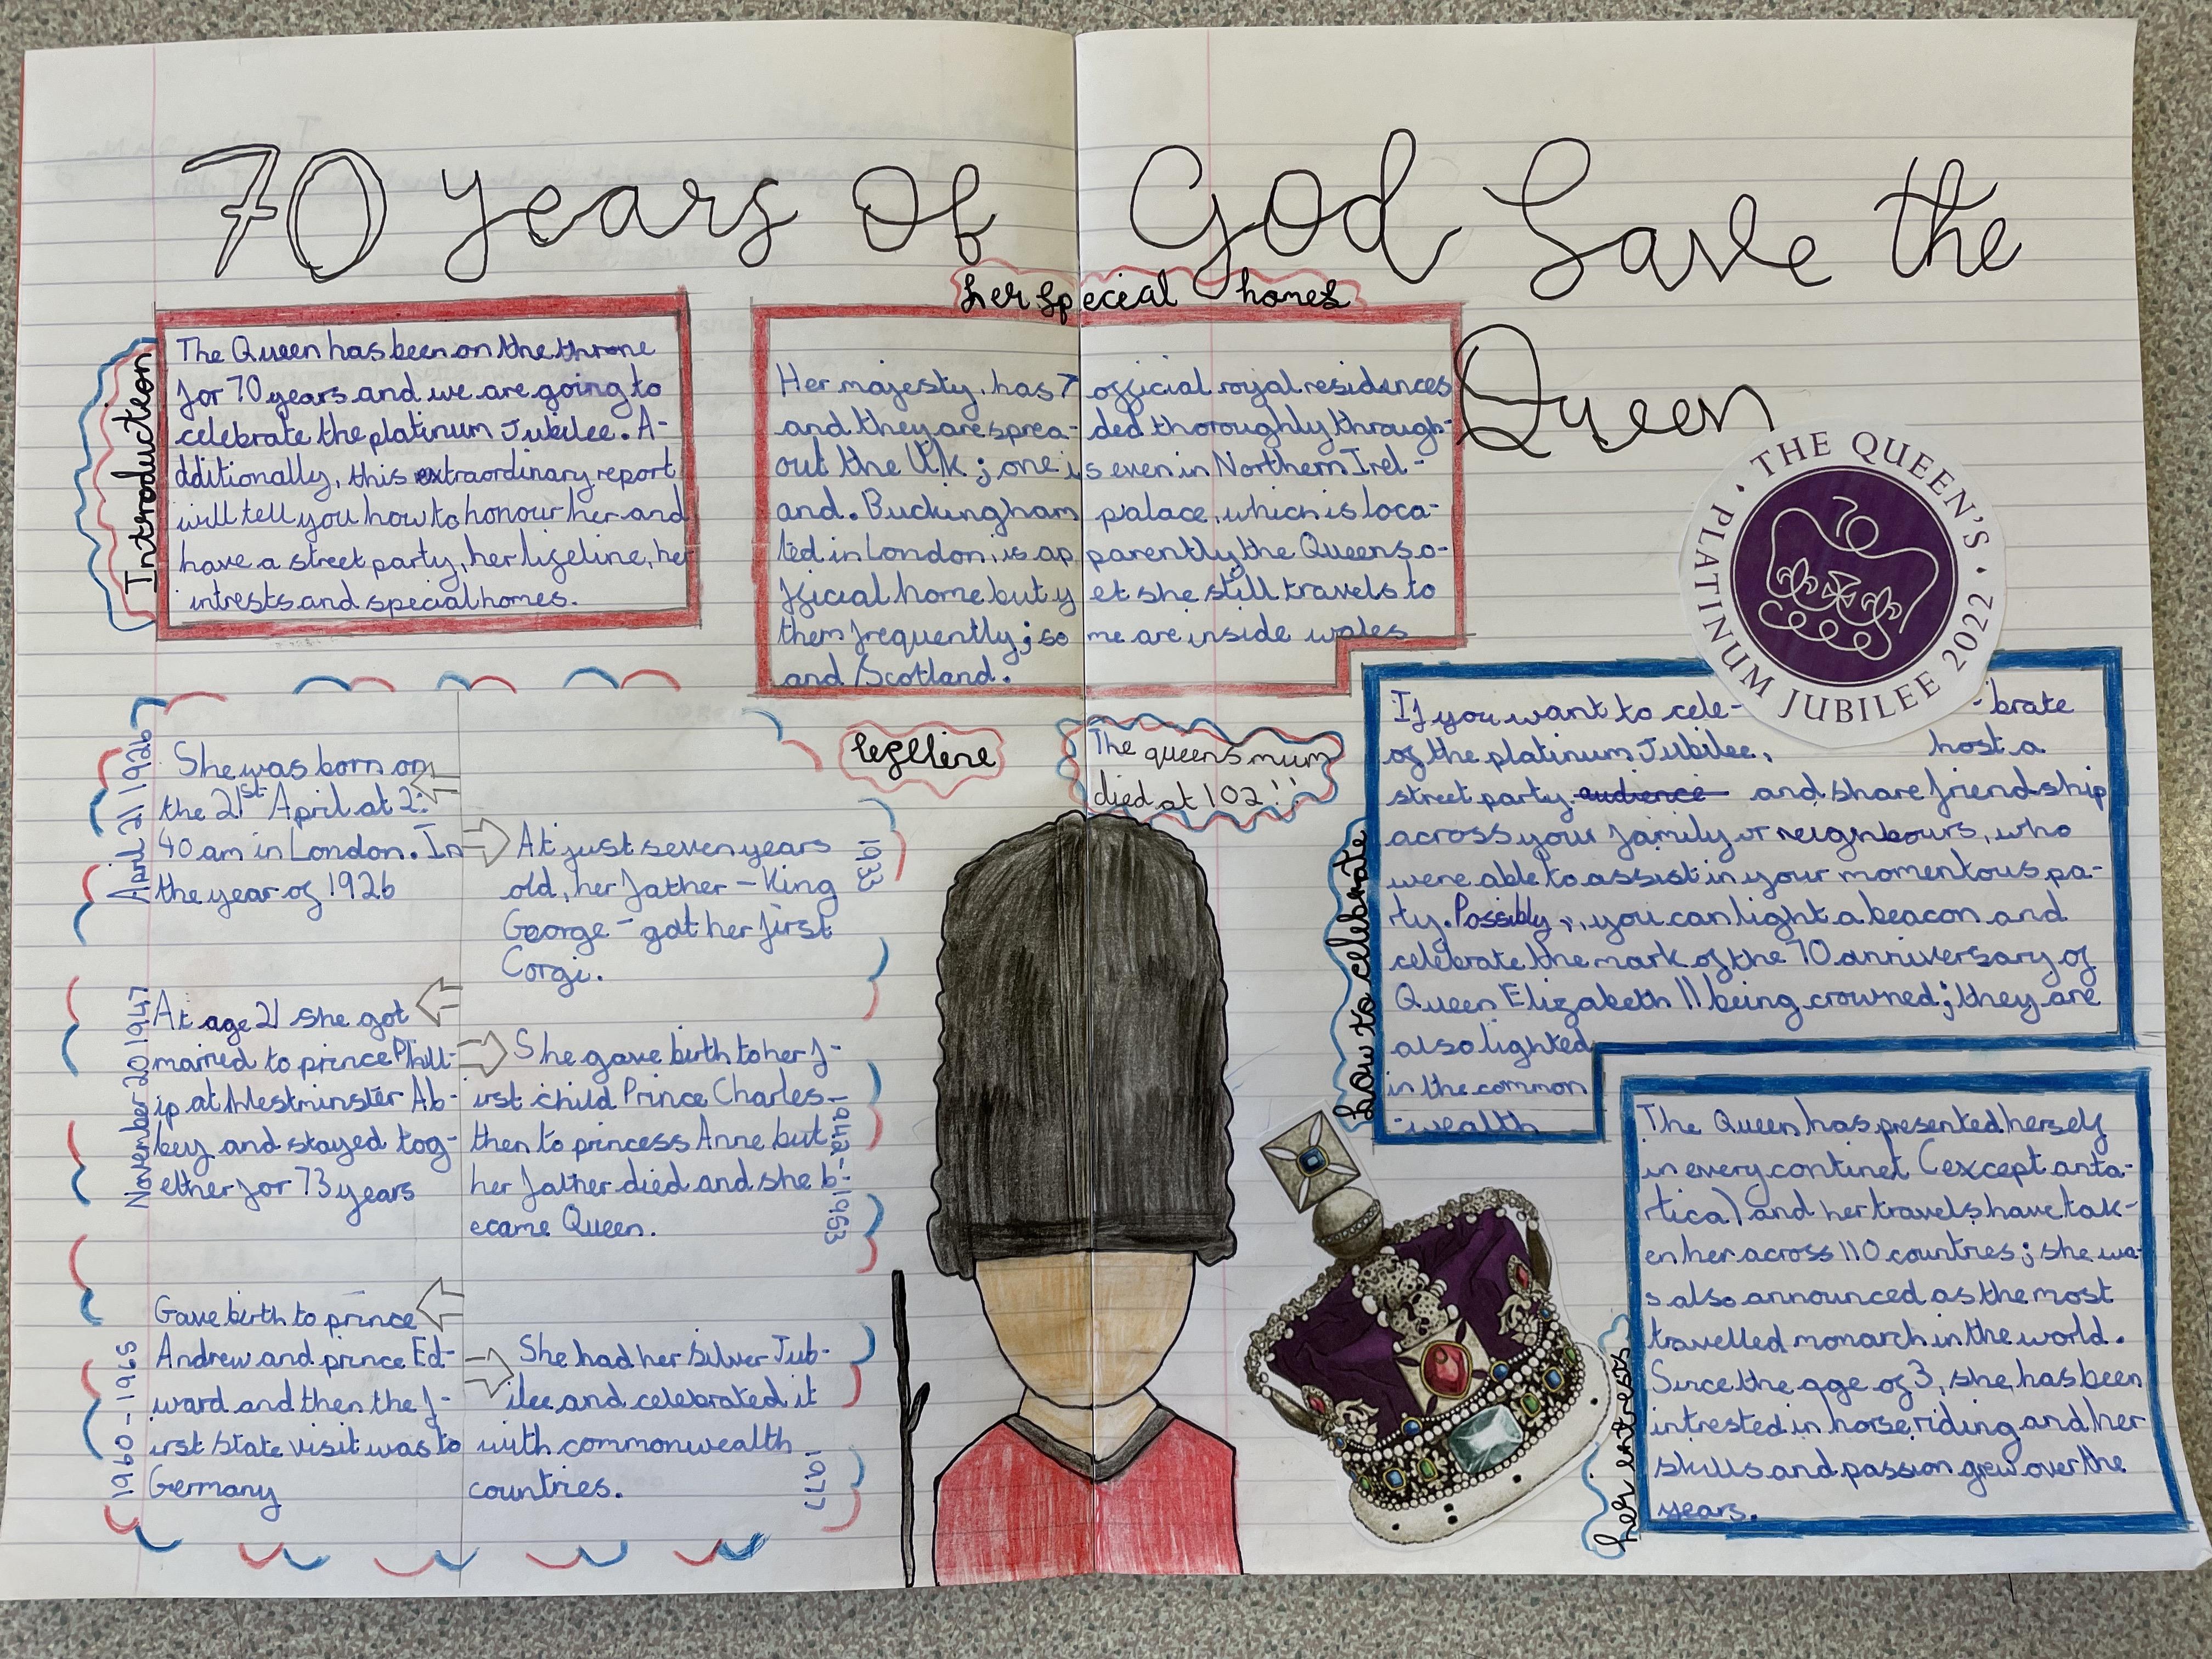 70 years of God Save the
Queen
Introduction
The Queen has been on the throne
for 70 years and we are going to
celebrate the platinum Jubilee. A-
dditionally, this extraordinary report
will tell you how to honour her and
have a street party, her lifeline, her
intrests and special homes.
her special homes
Her majesty, has 7 official royal residences
and they are sprea-ded thoroughly through-
out the Uk; one is even in Northern Irel-
and. Buckingham palace, which is loca-
ted in London, is apparently the Queens o-
fficial home but yet she still travels to
them frequently; some are inside wales
and Scotland.
THE QUEEN'S
PLATINUM JUBILEE 2022
lifeline
April 21 1926
She was born on
the 21st April at 2:
40 am in London. In
the year of 1926
1933
At just seven years
old, her father - King
George - got her first
Corgi.
November 20 1947
At age 21 she got
married to prince Phill-
ip at Westminster Ab-
bey and stayed tog-
ether for 73 years
She gave birth to her f-
irst child Prince Charles
then to princess Anne but
her father died and she b-
ecame Queen.
1960-1965
Gave birth to prince
Andrew and prince Ed-
ward and then the f-
irst State visit was to
Germany
1977
She had her Silver Jub-
ilee and celebrated it
with commonwealth
countries.
The queens mum
died at 102!!
how to celebrate
If you want to cele- -brate
of the platinum Jubilee, host a
street party audience and share friendship
across your family or neighbours, who
were able to assist in your momentous pa-
rty. Possibly, you can light a beacon and
celebrate the mark of the 70 anniversary of
Queen Elizabeth II being crowned; they are
also lighted
in the common
-wealth
her intrests
The Queen has presented herself
in every continet (except anta-
rtica) and her travels have tak-
en her across 110 countries; she wa-
s also announced as the most
travelled monarch in the world.
Since the age of 3, she has been
intrested in horse riding and her
skills and passion grew over the
years.